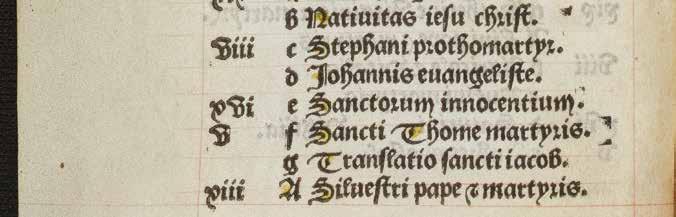 B Natiuitas iesu christ.
viii c Stephani prothomartyr.
d Johannis euangeliste.
xvi e Sanctorum innocentium.
v f Sancti Thome martyris.
g Translatio sancti iacob.
xiii A Siluestri pape ⁊ martyris.